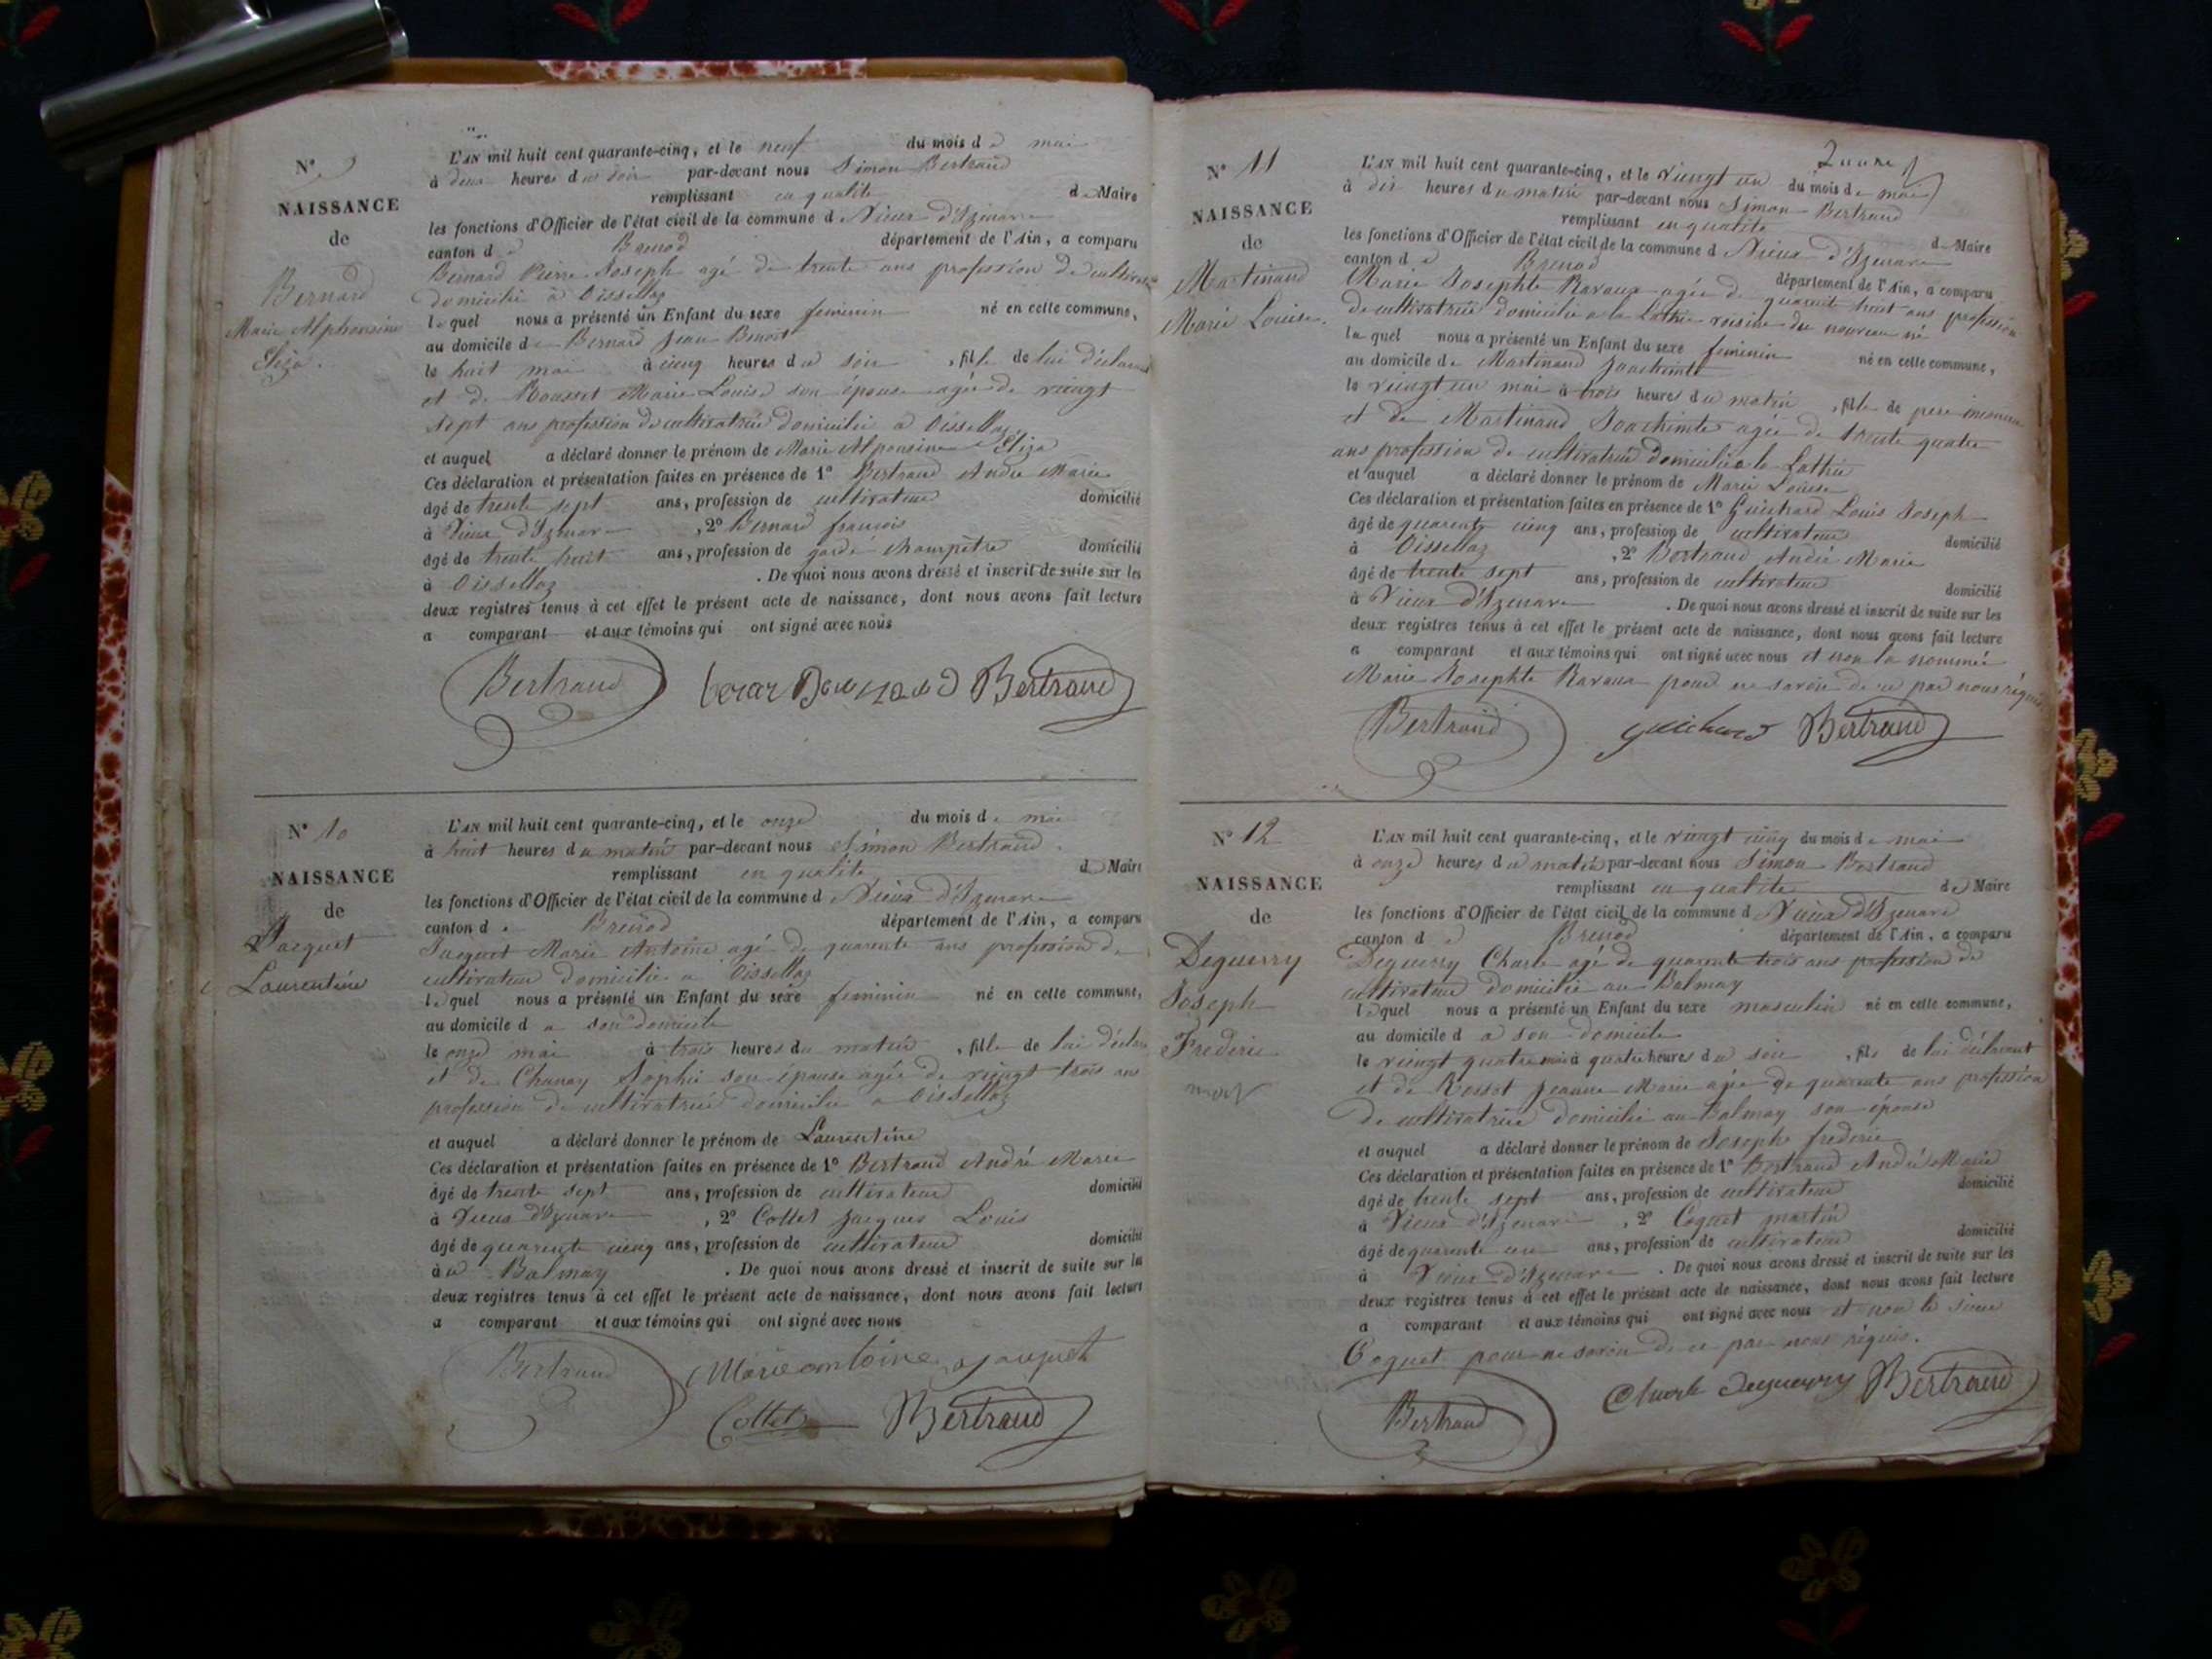 N° 9
NAISSANCE
de
Bernard
Marie Alphonsine
Eliza.
L'AN mil huit cent quarante-cinq, et le neuf du mois de mai
à deux heures du soir par-devant nous Simon Bertrand
remplissant en qualité de Maire
les fonctions d'Officier de l'état civil de la commune d Vieux d'Izenave
canton de Brenod département de l'Ain, a comparu
Bernard Pierre Joseph agé de trente ans profession de cultivateur
domicilié à Oissellaz
lequel nous a présenté un Enfant du sexe feminin né en cette commune,
au domicile de Bernard Jean Benoit
le huit mai à cinq heures du soir, fille de lui déclarant
et de Rousset Marie Louise son épouse agée de vingt
sept ans profession de cultivatrice domicilié à Oissellaz
et auquel a déclaré donner le prénom de Marie Alponsine Eliza
Ces déclaration et présentation faites en présence de 1° Bertrand André Marie
âgé de trente sept ans, profession de cultivateur domicilié
à Vieux d'Izenave, 2° Bernard francois
âgé de trente huit ans, profession de garde champètre domicilié
à Oissellaz. De quoi nous avons dressé et inscrit de suite sur les
deux registres tenus à cet effet le présent acte de naissance, dont nous avons fait lecture
a comparant et aux témoins qui ont signé avec nous
Bertrand Bertrand
N° 10
NAISSANCE
de
Jacquet
Laurentine
L'AN mil huit cent quarante-cinq, et le onze du mois de mai
à huit heures du matin par-devant nous Simon Bertrand
remplissant en qualité de Maire
les fonctions d'Officier de l'état civil de la commune d Vieux d'Izenave
canton de Brenod département de l'Ain, a comparu
Jacquet Marie Antoine agé de quarente ans profession de
cultivateur domicilié a Oissellaz
lequel nous a présenté un Enfant du sexe feminin né en cette commune,
au domicile d a son domicile
le onze mai à trois heures du matin, fille de lui déclarant
et de Chanay Sophie son épouse agée de vingt trois ans
profession de cultivatrice domicilié a Oissellaz
et auquel a déclaré donner le prénom de Laurentine
Ces déclaration et présentation faites en présence de 1° Bertrand André Marie
âgé de trente sept ans, profession de cultivateur domicilié
à Vieux d'Izenave, 2° Collet Jacques Louis
âgé de quarente cinq ans, profession de cultivateur domicilié
à u Balmay. De quoi nous avons dressé et inscrit de suite sur les
deux registres tenus à cet effet le présent acte de naissance, dont nous avons fait lecture
a comparant et aux témoins qui ont signé avec nous
Bertrand Marie antoine jaquet
Collet Bertrand
N° 11
NAISSANCE
de
Martinand
Marie Louise.
L'AN mil huit cent quarante-cinq, et le vingt un du mois de mai
à dix heures du matin par-devant nous Simon Bertrand
remplissant en qualité de Maire
les fonctions d'Officier de l'état civil de la commune d Vieux d'Izenave
canton de Brenod département de l'Ain, a comparu
Marie Josephte Ravaux agée de quarente huit ans profession
de cultivatrice domicilié a la Lathie voisine du nouveau né
laquel nous a présenté un Enfant du sexe feminin né en cette commune,
au domicile de Martinand Joachimte
le vingt un mai à trois heures du matin, fille de père inconnu
et de Martinand Joachimte agée de trente quatre
ans profession de cultivatrice domicilié a la Lathie
et auquel a déclaré donner le prénom de Marie Louise
Ces déclaration et présentation faites en présence de 1° Guichard Louis Joseph
âgé de quarente cinq ans, profession de cultivateur domicilié
à Oissellaz, 2° Bertrand André Marie
âgé de trente sept ans, profession de cultivateur domicilié
à Vieux d'Izenave. De quoi nous avons dressé et inscrit de suite sur les
deux registres tenus à cet effet le présent acte de naissance, dont nous avons fait lecture
a comparant et aux témoins qui ont signé avec nous et non la nommée
Marie Josephte Ravaux pour ne savoir de ce par nous réquis
Bertrand guichard Bertrand
N° 12
NAISSANCE
de
Deguerry
Joseph
Frederic
mort
L'AN mil huit cent quarante-cinq, et le vingt cinq du mois de mai
à onze heures du matin par-devant nous Simon Bertrand
remplissant en qualité de Maire
les fonctions d'Officier de l'état civil de la commune d Vieux d'Izenave
canton de Brenod département de l'Ain, a comparu
Deguerry Charle agé de quarente trois ans profession de
cultivateur domicilié au Balmay
lequel nous a présenté un Enfant du sexe masculin né en cette commune,
au domicile d a son domicile
le vingt quatre mai à quatre heures du soir, fils de lui déclarant
et de Rosset Jeanne Marie agée de quarente ans profession
de cultivatrice domicilié au Balmay son épouse
et auquel a déclaré donner le prénom de Joseph frederic
Ces déclaration et présentation faites en présence de 1° Bertrand André Marie
âgé de trente sept ans, profession de cultivateur domicilié
à Vieux d'Izenave, 2° Coquet martin
âgé de quarente un ans, profession de cultivateur domicilié
à Vieux d'Izenave. De quoi nous avons dressé et inscrit de suite sur les
deux registres tenus à cet effet le présent acte de naissance, dont nous avons fait lecture
a comparant et aux témoins qui ont signé avec nous et non le sieur
Coquet pour ne savoir de ce par nous réquis.
Bertrand Charle deguerry Bertrand